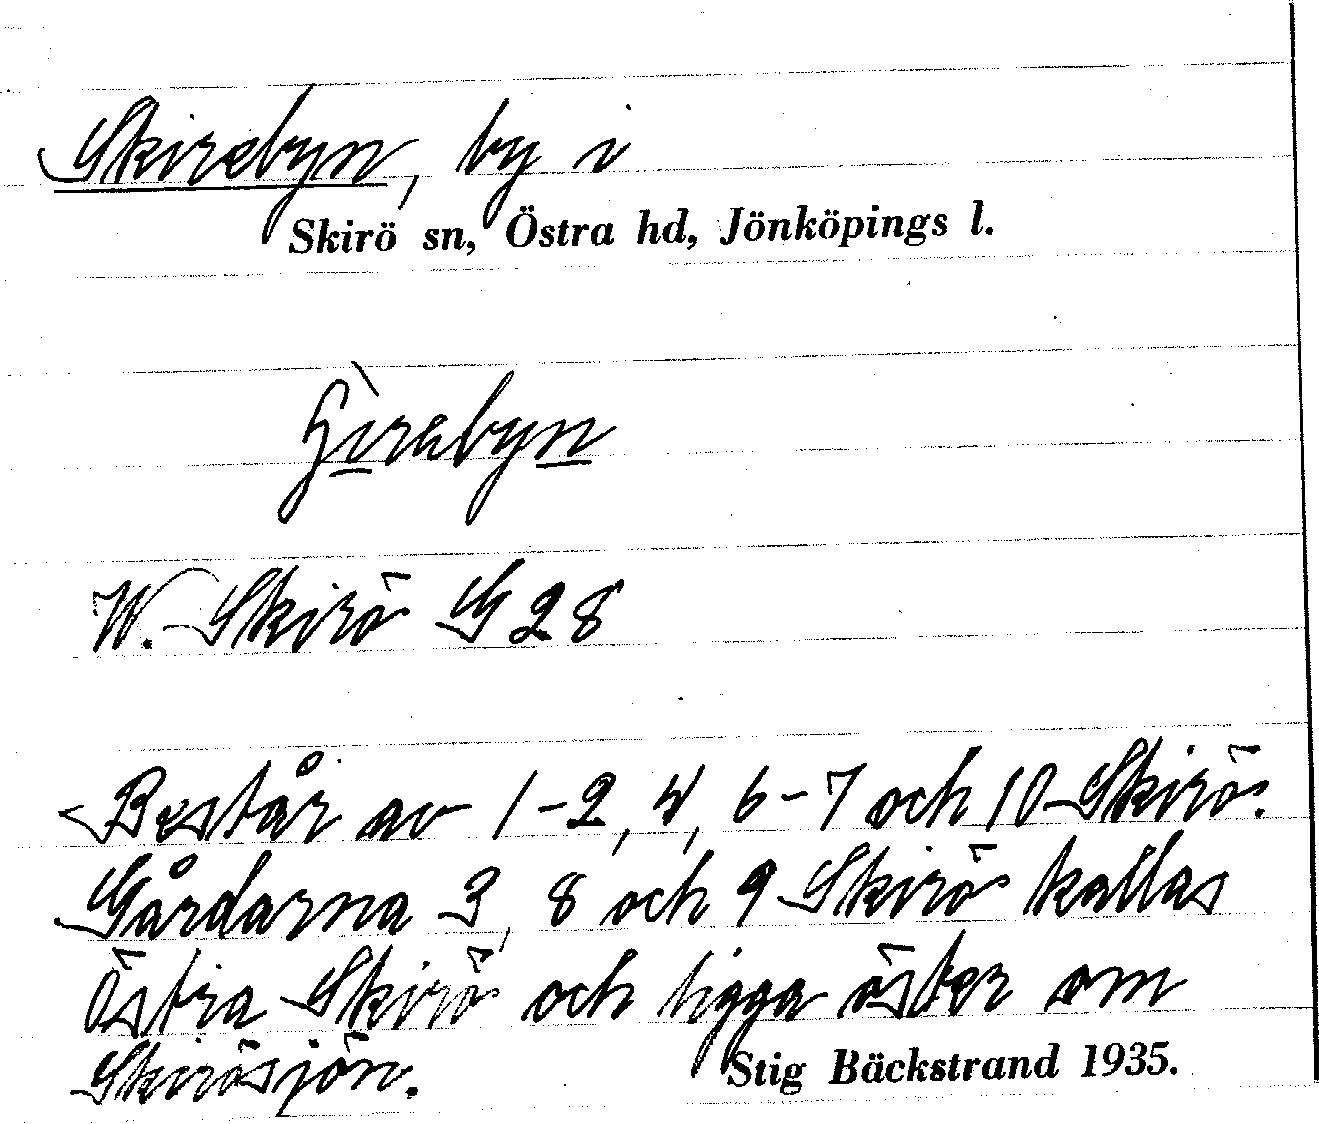 Skirebyn, by i
Skirö sn, Östra hd, Jönköpings l.
W. Skirö G 28
Består av 1-2, 4, 6-7 och 10 Skirö.
Gårdarna 3, 8 och 9 Skirö kallas
östra Skirö och ligga öster om
Skirösjön.
Stig Bäckstrand 1935.